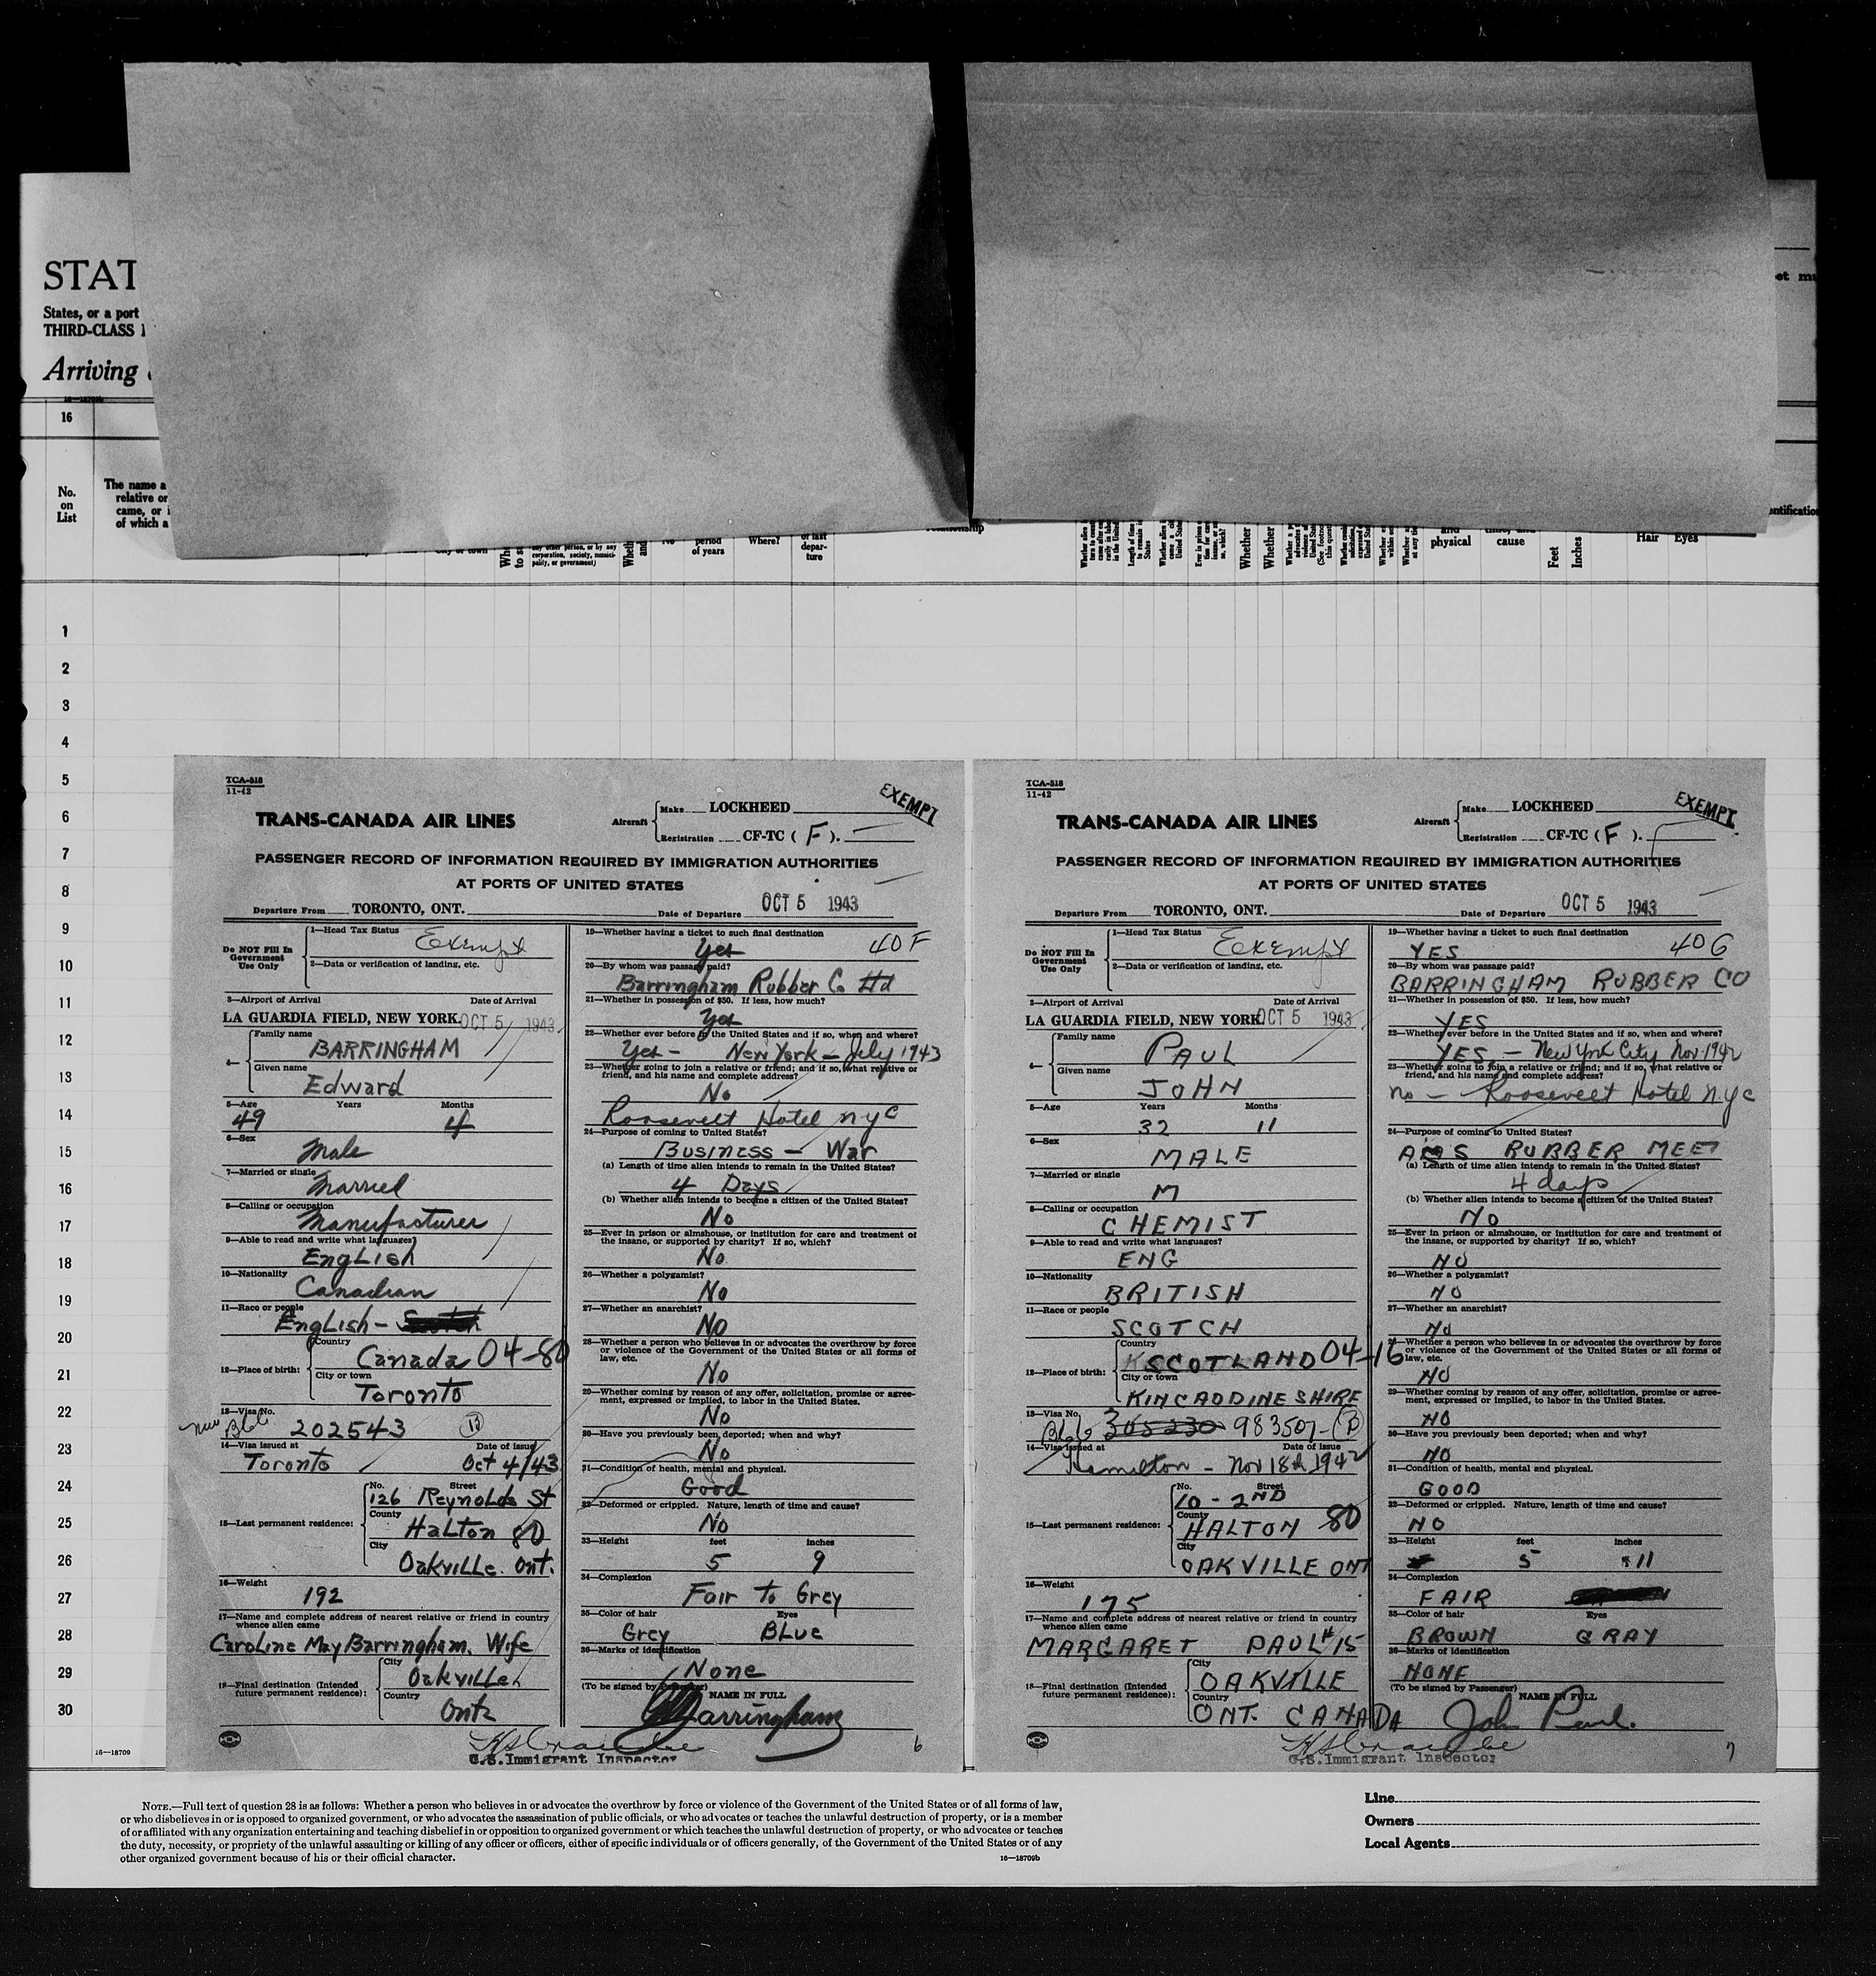 STAT
States, or a port
THIRD-CLASS
Arriving
16
No.
on
List
The name a
relative or
came, or i
of which a
any other person, or by any
corporation, society, munici-
pality, or government)
period
of years
Where?
of last
depar-
ture
physical
cause
Feet
Inches
Hair Eyes
1
2
3
4
5
6
7
8
9
10
11
12
13
14
15
16
17
18
19
20
21
22
23
24
25
26
27
28
29
30
16—18709
TCA-518
11-42
TRANS-CANADA AIR LINES
Aircraft
Make LOCKHEED
Registration CF-TC ( F ).
EXEMPT
PASSENGER RECORD OF INFORMATION REQUIRED BY IMMIGRATION AUTHORITIES
AT PORTS OF UNITED STATES
Departure From TORONTO, ONT. Date of Departure OCT 5 1943
Do NOT Fill In
Government
Use Only
1—Head Tax Status Exempt
2—Data or verification of landing, etc.
3—Airport of Arrival Date of Arrival
LA GUARDIA FIELD, NEW YORK. OCT 5 1943
4—
Family name
BARRINGHAM
Given name
Edward
5—Age Years Months
49 4
6—Sex
Male
7—Married or single
Married
8—Calling or occupation
Manufacturer
9—Able to read and write what languages?
English
10—Nationality
Canadian
11—Race or people
English - Scotch
12—Place of birth:
Country
Canada 04-80
City or town
Toronto
13—Visa No.
202543
14—Visa issued at Date of issue
Toronto Oct 4/43
15—Last permanent residence:
No. Street
126 Reynolds St
County
Halton 80
City
Oakville. Ont.
16—Weight
192
17—Name and complete address of nearest relative or friend in country
whence alien came
Caroline May Barringham. Wife
18—Final destination (Intended
future permanent residence):
City
Oakville
Country
Ont
19—Whether having a ticket to such final destination
Yes 40F
20—By whom was passage paid?
Barringham Rubber Co Ltd
21—Whether in possession of $50. If less, how much?
Yes
22—Whether ever before in the United States and if so, when and where?
Yes - New York - July 1943
23—Whether going to join a relative or friend; and if so, what relative or
friend, and his name and complete address?
No
Roosevelt Hotel nyc
24—Purpose of coming to United States?
Business - War
(a) Length of time alien intends to remain in the United States?
4 Days
(b) Whether alien intends to become a citizen of the United States?
No
25—Ever in prison or almshouse, or institution for care and treatment of
the insane, or supported by charity? If so, which?
No.
26—Whether a polygamist?
No
27—Whether an anarchist?
No
28—Whether a person who believes in or advocates the overthrow by force
or violence of the Government of the United States or all forms of
law, etc.
No
29—Whether coming by reason of any offer, solicitation, promise or agree-
ment, expressed or implied, to labor in the United States.
No
30—Have you previously been deported; when and why?
No
31—Condition of health, mental and physical.
Good
32—Deformed or crippled. Nature, length of time and cause?
No
33—Height feet inches
5 9
34—Complexion
Fair to Grey
35—Color of hair Eyes
Grey Blue
36—Marks of identification
None
(To be signed by Passenger) NAME IN FULL
Barringham
U.S. Immigrant Inspector
6
TCA-518
11-42
TRANS-CANADA AIR LINES
Aircraft
Make LOCKHEED
Registration CF-TC ( F ).
EXEMPT
PASSENGER RECORD OF INFORMATION REQUIRED BY IMMIGRATION AUTHORITIES
AT PORTS OF UNITED STATES
Departure From TORONTO, ONT. Date of Departure OCT 5 1943
Do NOT Fill In
Government
Use Only
1—Head Tax Status Exempt
2—Data or verification of landing, etc.
3—Airport of Arrival Date of Arrival
LA GUARDIA FIELD, NEW YORK OCT 5 1943
4—
Family name
PAUL
Given name
JOHN
5—Age Years Months
32 11
6—Sex
MALE
7—Married or single
M
8—Calling or occupation
CHEMIST
9—Able to read and write what languages?
ENG
10—Nationality
BRITISH
11—Race or people
SCOTCH
12—Place of birth:
Country
SCOTLAND 04-16
City or town
KINCADDINE SHIRE
13—Visa No.
305230 983507- B
14—Visa issued at Date of issue
Hamilton - Nov 18th 1942
15—Last permanent residence:
No. Street
10 - 2ND
County
HALTON 80
City
OAKVILLE ONT
16—Weight
175
17—Name and complete address of nearest relative or friend in country
whence alien came
MARGARET PAUL #15
18—Final destination (Intended
future permanent residence):
City
OAKVILLE
Country
ONT. CANADA
19—Whether having a ticket to such final destination
YES 40G
20—By whom was passage paid?
BARRINGHAM RUBBER CO
21—Whether in possession of $50. If less, how much?
YES
22—Whether ever before in the United States and if so, when and where?
YES - New York City Nov. 1942
23—Whether going to join a relative or friend; and if so, what relative or
friend, and his name and complete address?
no - Roosevelt Hotel N.Y.C
24—Purpose of coming to United States?
RUBBER MEET
(a) Length of time alien intends to remain in the United States?
4 days
(b) Whether alien intends to become a citizen of the United States?
NO
25—Ever in prison or almshouse, or institution for care and treatment of
the insane, or supported by charity? If so, which?
NO
26—Whether a polygamist?
NO
27—Whether an anarchist?
NO
28—Whether a person who believes in or advocates the overthrow by force
or violence of the Government of the United States or all forms of
law, etc.
NO
29—Whether coming by reason of any offer, solicitation, promise or agree-
ment, expressed or implied, to labor in the United States.
NO
30—Have you previously been deported; when and why?
NO
31—Condition of health, mental and physical.
GOOD
32—Deformed or crippled. Nature, length of time and cause?
NO
33—Height feet inches
5 11
34—Complexion
FAIR
35—Color of hair Eyes
BROWN GRAY
36—Marks of identification
NONE
(To be signed by Passenger) NAME IN FULL
John Paul.
U.S. Immigrant Inspector
7
NOTE.—Full text of question 28 is as follows: Whether a person who believes in or advocates the overthrow by force or violence of the Government of the United States or of all forms of law,
or who disbelieves in or is opposed to organized government, or who advocates the assassination of public officials, or who advocates or teaches the unlawful destruction of property, or is a member
of or affiliated with any organization entertaining and teaching disbelief in or opposition to organized government or which teaches the unlawful destruction of property, or who advocates or teaches
the duty, necessity, or propriety of the unlawful assaulting or killing of any officer or officers, either of specific individuals or of officers generally, of the Government of the United States or of any
other organized government because of his or their official character.
16—18709b
Line
Owners
Local Agents